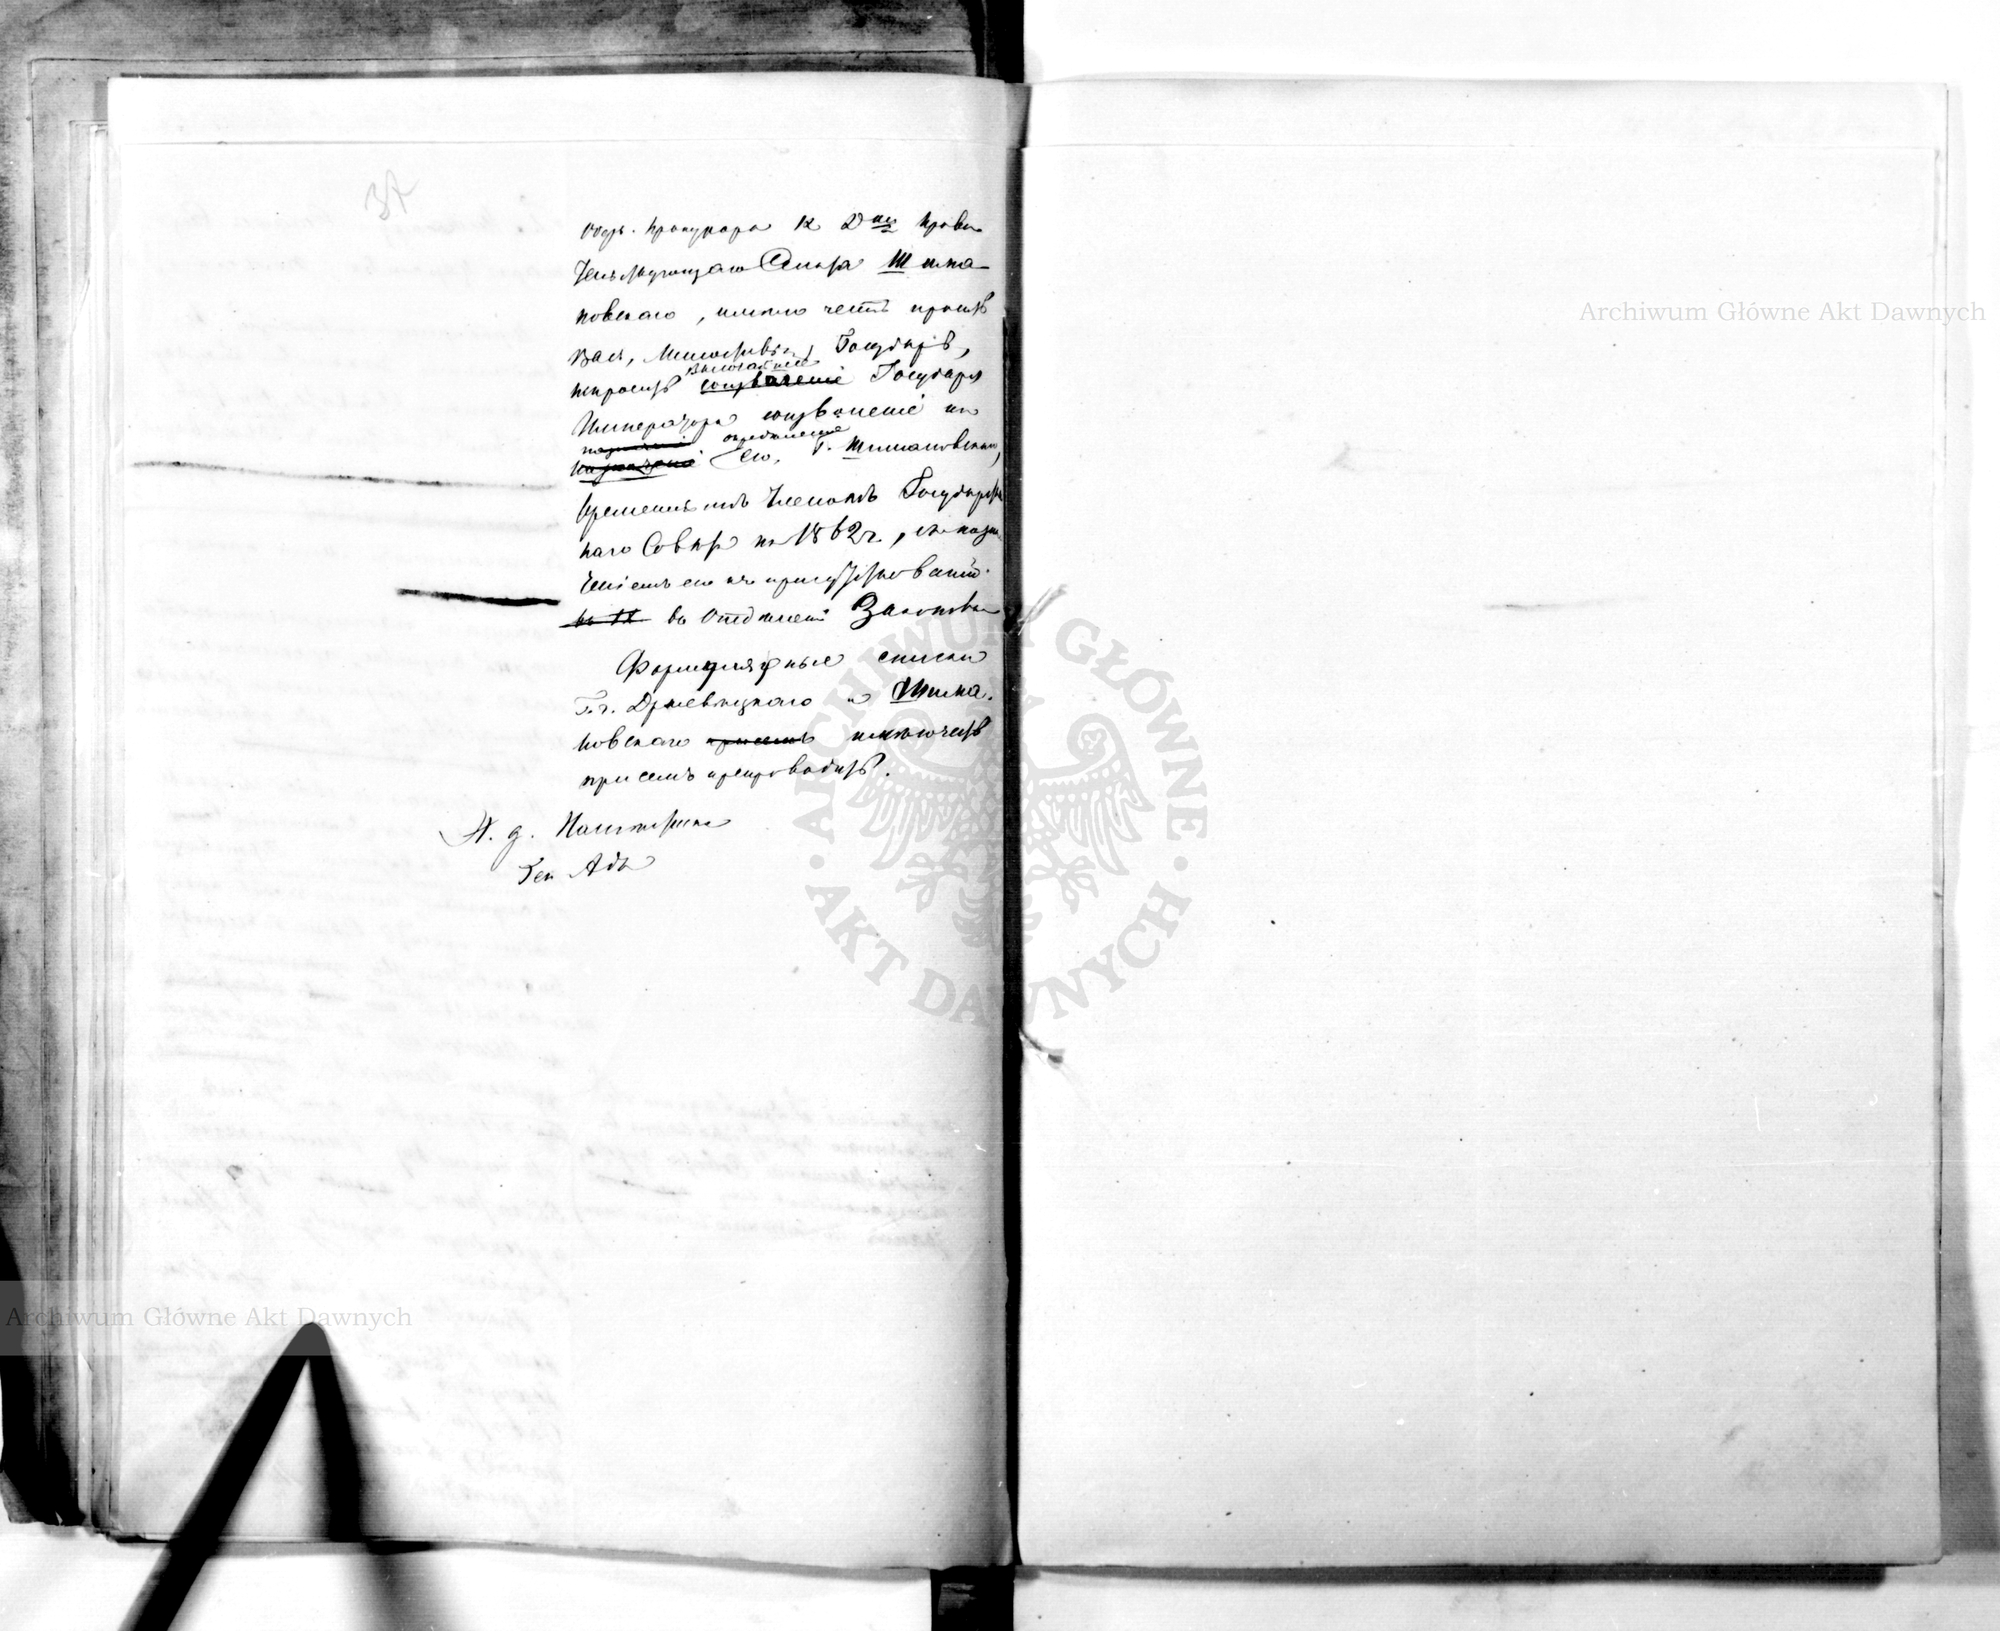 37
Обер-Прокурора IX Дпта Прави
тельствующаго Сената Шима
новскаго, имѣю честь просить
Васъ, Милостивый Государь,
Высочайшее
испросить соизволеніе Государя
Императора соизволеніе на
опредѣленіе
назначеніе его, Г. Шимановскаго,
временнымъ Членомъ Государствен
наго Совѣта на 1862 г., съ назна
ченіемъ его къ присутствованію
въ IX въ Отдѣленіи Законовъ
Формулярные списки
Г.г. Држевецкаго и Шима
новскаго при семъ имѣю честь
при семъ препроводить.
И. д. Намѣстника
Ген Адъ
Archiwum Główne Akt Dawnych
Archiwum Główne Akt Dawnych
ARCHIWUM GŁÓWNE
AKT DAWNYCH